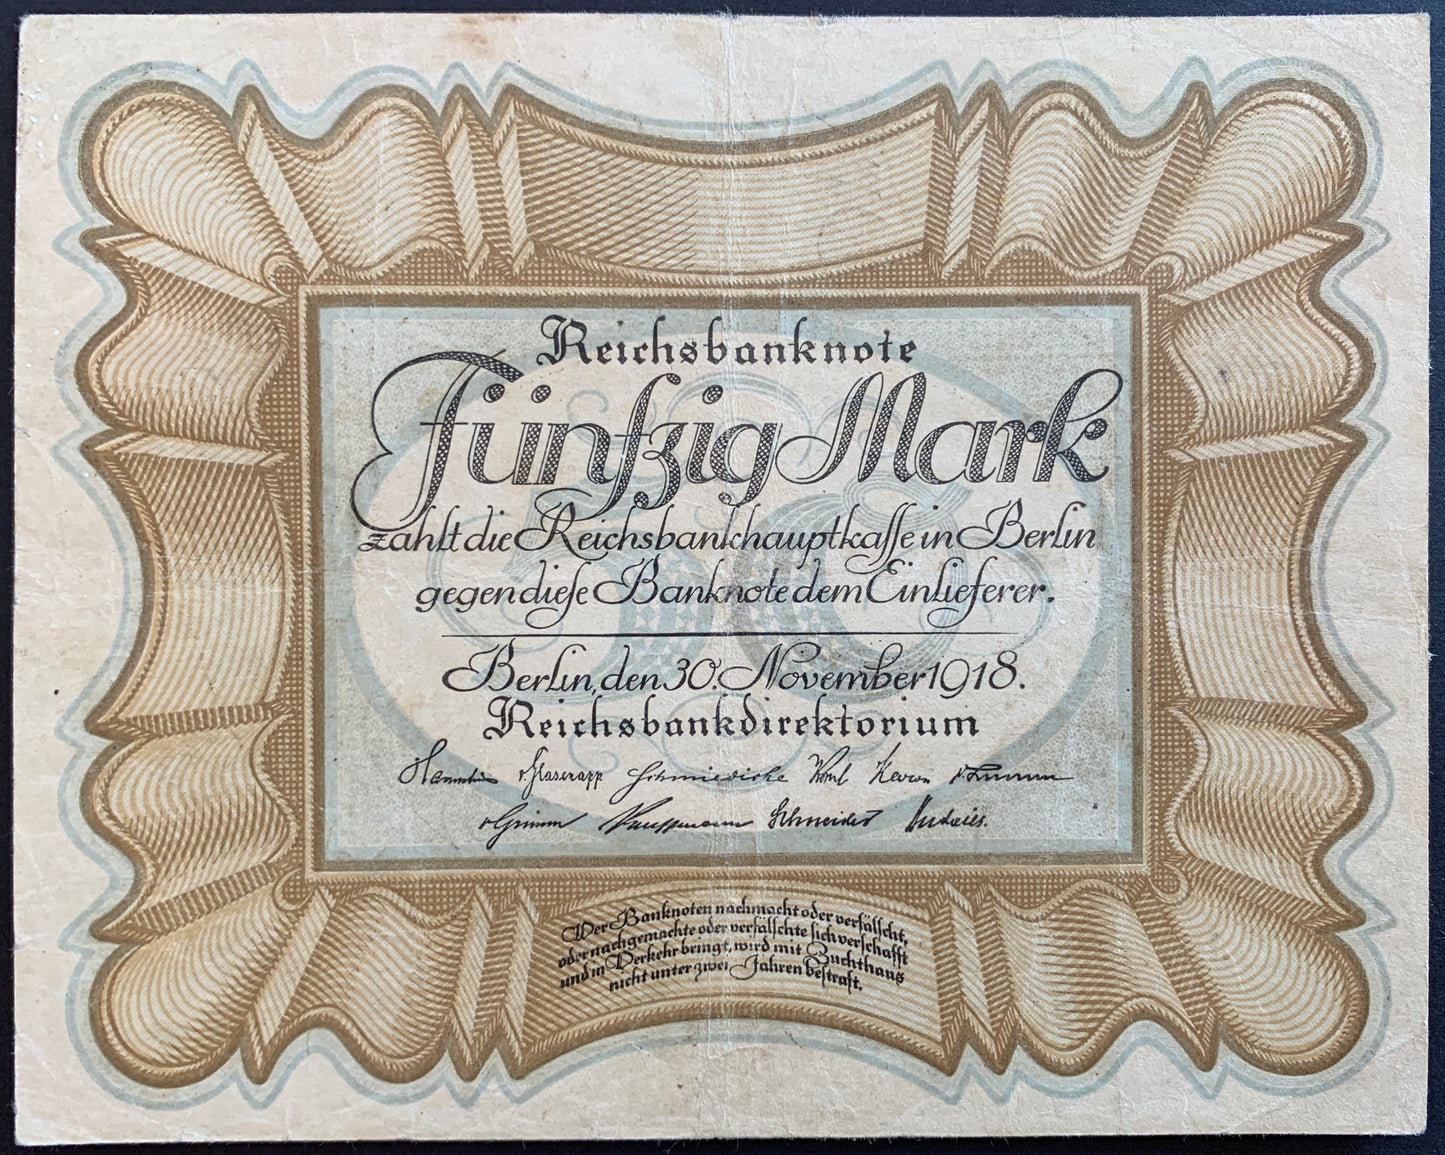 Reichsbanknote
Fünfzig Mark
zahlt die Reichsbankhauptkasse in Berlin
gegen diese Banknote dem Einlieferer.
Berlin, den 30. November 1918.
Reichsbankdirektorium
v. Glasenapp Schmiedicke Korn
v. Grimm Kauffmann Schneider
Wer Banknoten nachmacht oder verfälscht,
oder nachgemachte oder verfälschte sich verschafft
und in Verkehr bringt, wird mit Zuchthaus
nicht unter zwei Jahren bestraft.